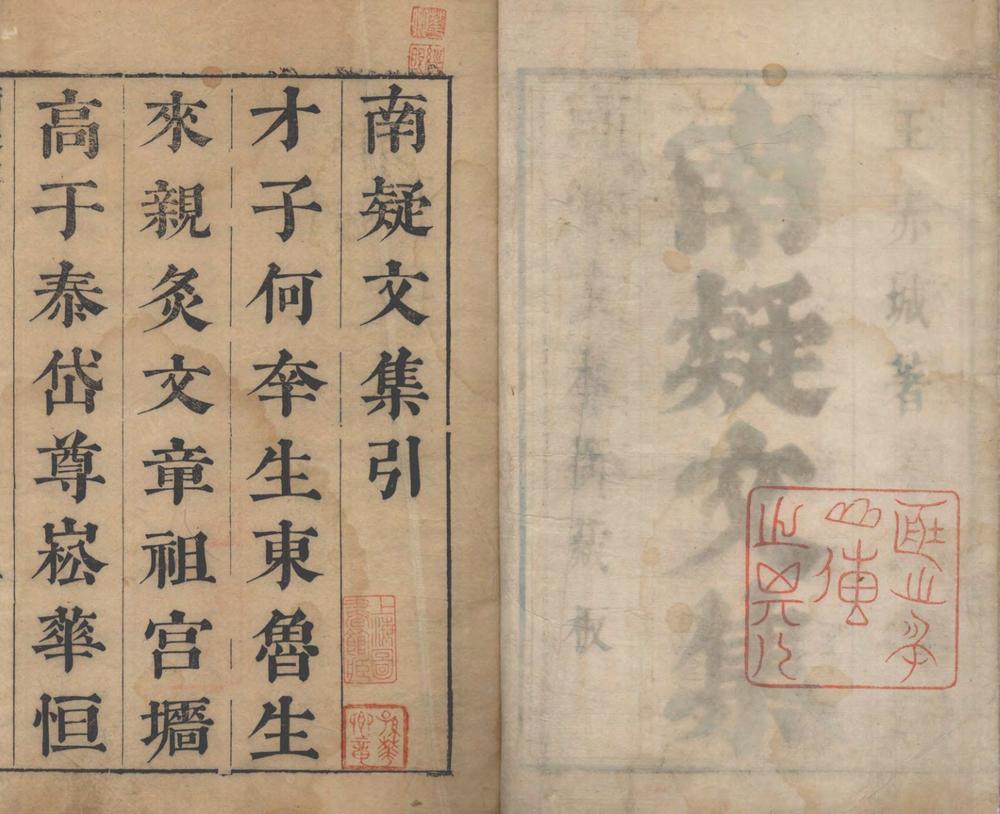 王赤城著
南疑文集
藏板
南疑文集引
才子何㚔生東魯生
來親炙文章祖宮墻
高于泰岱尊崧華恒
上海圖
書館藏